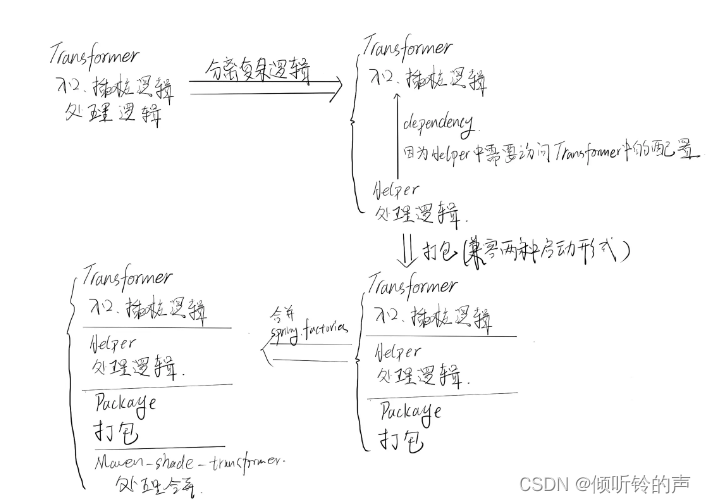 Transformer
插桩逻辑
处理逻辑
分离复杂逻辑
Transformer
插桩逻辑
dependency
因为Helper中需要访问Transformer中的配置
Helper
处理逻辑
打包(兼容两种启动形式)
Transformer
插桩逻辑
Helper
处理逻辑
Package
打包
合并
spring.factories
Transformer
插桩逻辑
Helper
处理逻辑.
Package
打包
Maven-shade-transformer.
处理合并.
CSDN @倾听铃的声